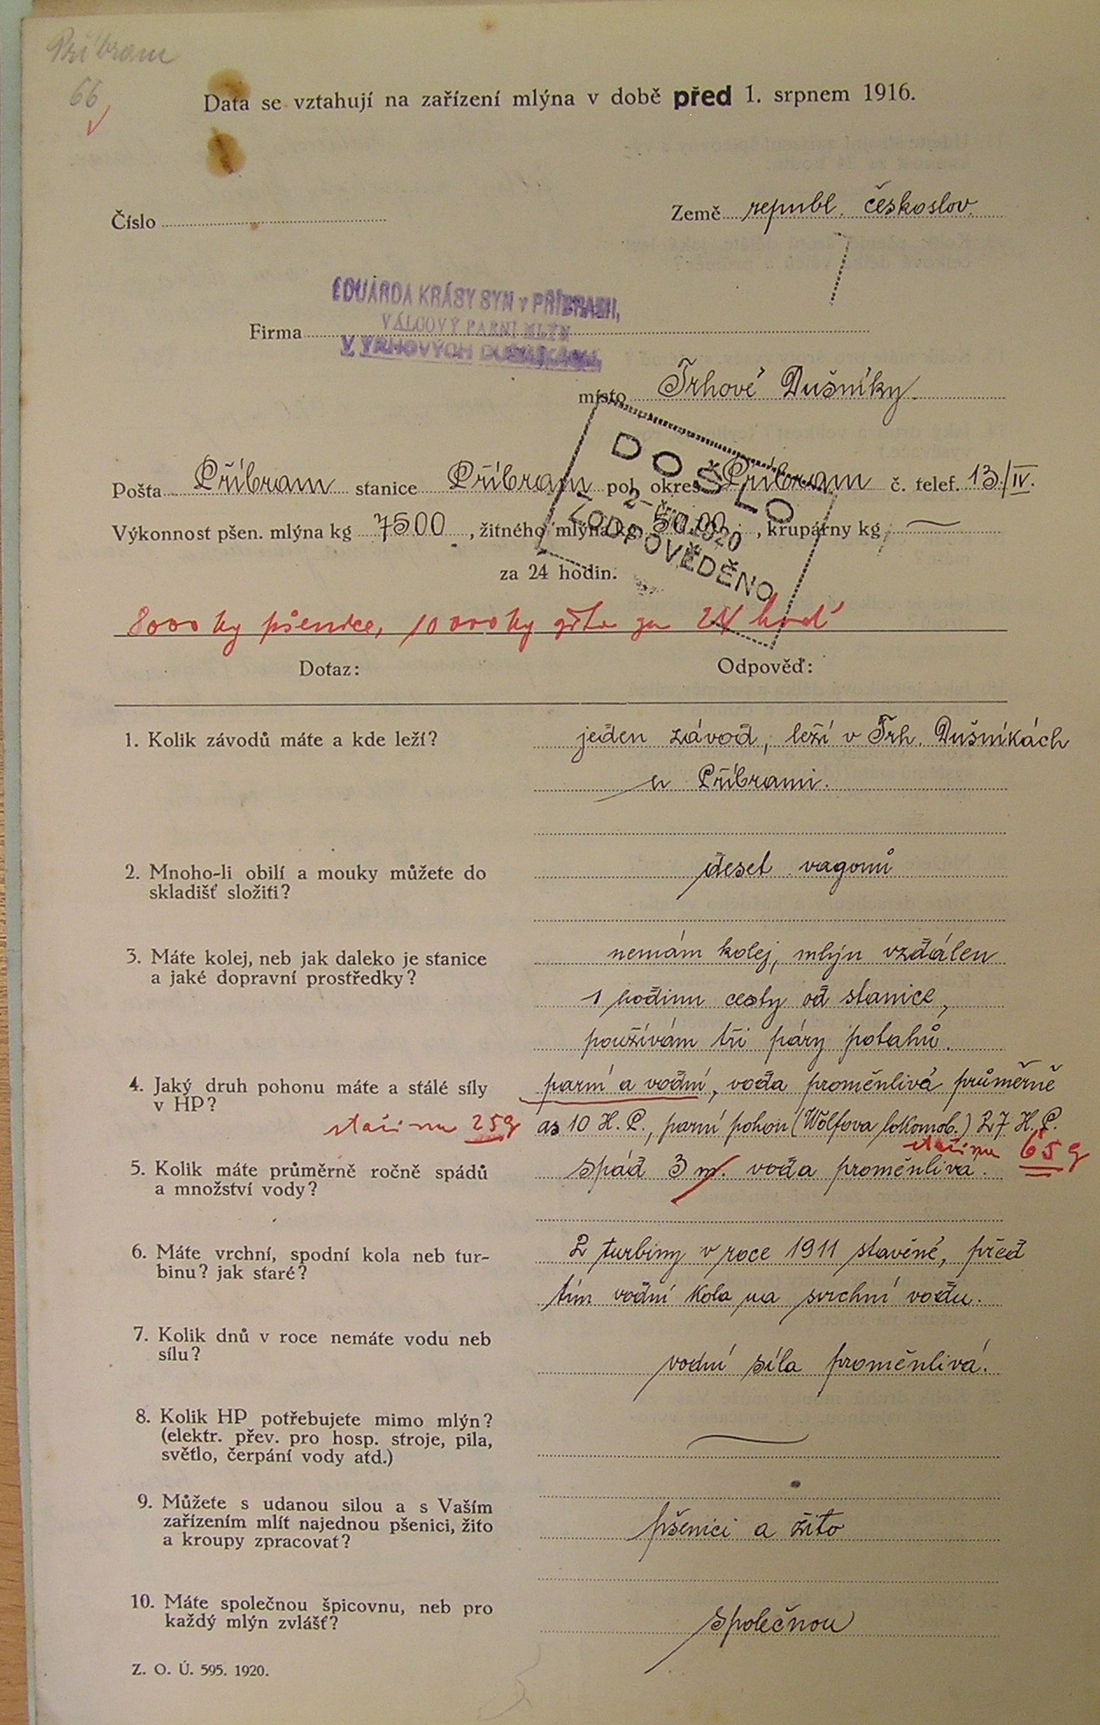 Příbram
66
Data se vztahují na zařízení mlýna v době před 1. srpnem 1916.
Číslo
Země republ. českoslov.
EDUARDA KRÁSY SYN v PŘÍBRAMI,
VÁLCOVÝ PARNÍ MLÝN
V TRHOVÝCH DUŠNÍKÁCH.
Firma
místo Trhové Dušníky.
DOŠLO
1920
ZODPOVĚDĚNO
Pošta Příbram stanice Příbram pol. okres Příbram č. telef. 13/IV.
Výkonnost pšen. mlýna kg 7500, žitného mlýna kg 5000, krupárny kg —
za 24 hodin.
8000 kg pšenice, 10000 kg žita za 24 hod
Dotaz: Odpověď:
1. Kolik závodů máte a kde leží? jeden závod, leží v Trh. Dušníkách
u Příbrami.
2. Mnoho-li obilí a mouky můžete do
skladišť složiti? deset vagonů
3. Máte kolej, neb jak daleko je stanice
a jaké dopravní prostředky? nemám kolej, mlýn vzdálen
1 hodinu cesty od stanice,
používám tři páry potahů.
4. Jaký druh pohonu máte a stálé síly
v HP? parní a vodní, voda proměnlivá průměrně
as 10 H. P., parní pohon (Wolfova lokomob.) 27 H. P.
5. Kolik máte průměrně ročně spádů
a množství vody? spád 3 m. voda proměnlivá.
6. Máte vrchní, spodní kola neb tur-
binu? jak staré? 2 turbiny v roce 1911 stavěné, před
tím vodní kola na svrchní vodu.
7. Kolik dnů v roce nemáte vodu neb
sílu? vodní síla proměnlivá.
8. Kolik HP potřebujete mimo mlýn?
(elektr. přev. pro hosp. stroje, pila,
světlo, čerpání vody atd.) —
9. Můžete s udanou silou a s Vaším
zařízením mlít najednou pšenici, žito
a kroupy zpracovat? pšenici a žito
10. Máte společnou špicovnu, neb pro
každý mlýn zvlášť? společnou
Z. O. Ú. 595. 1920.